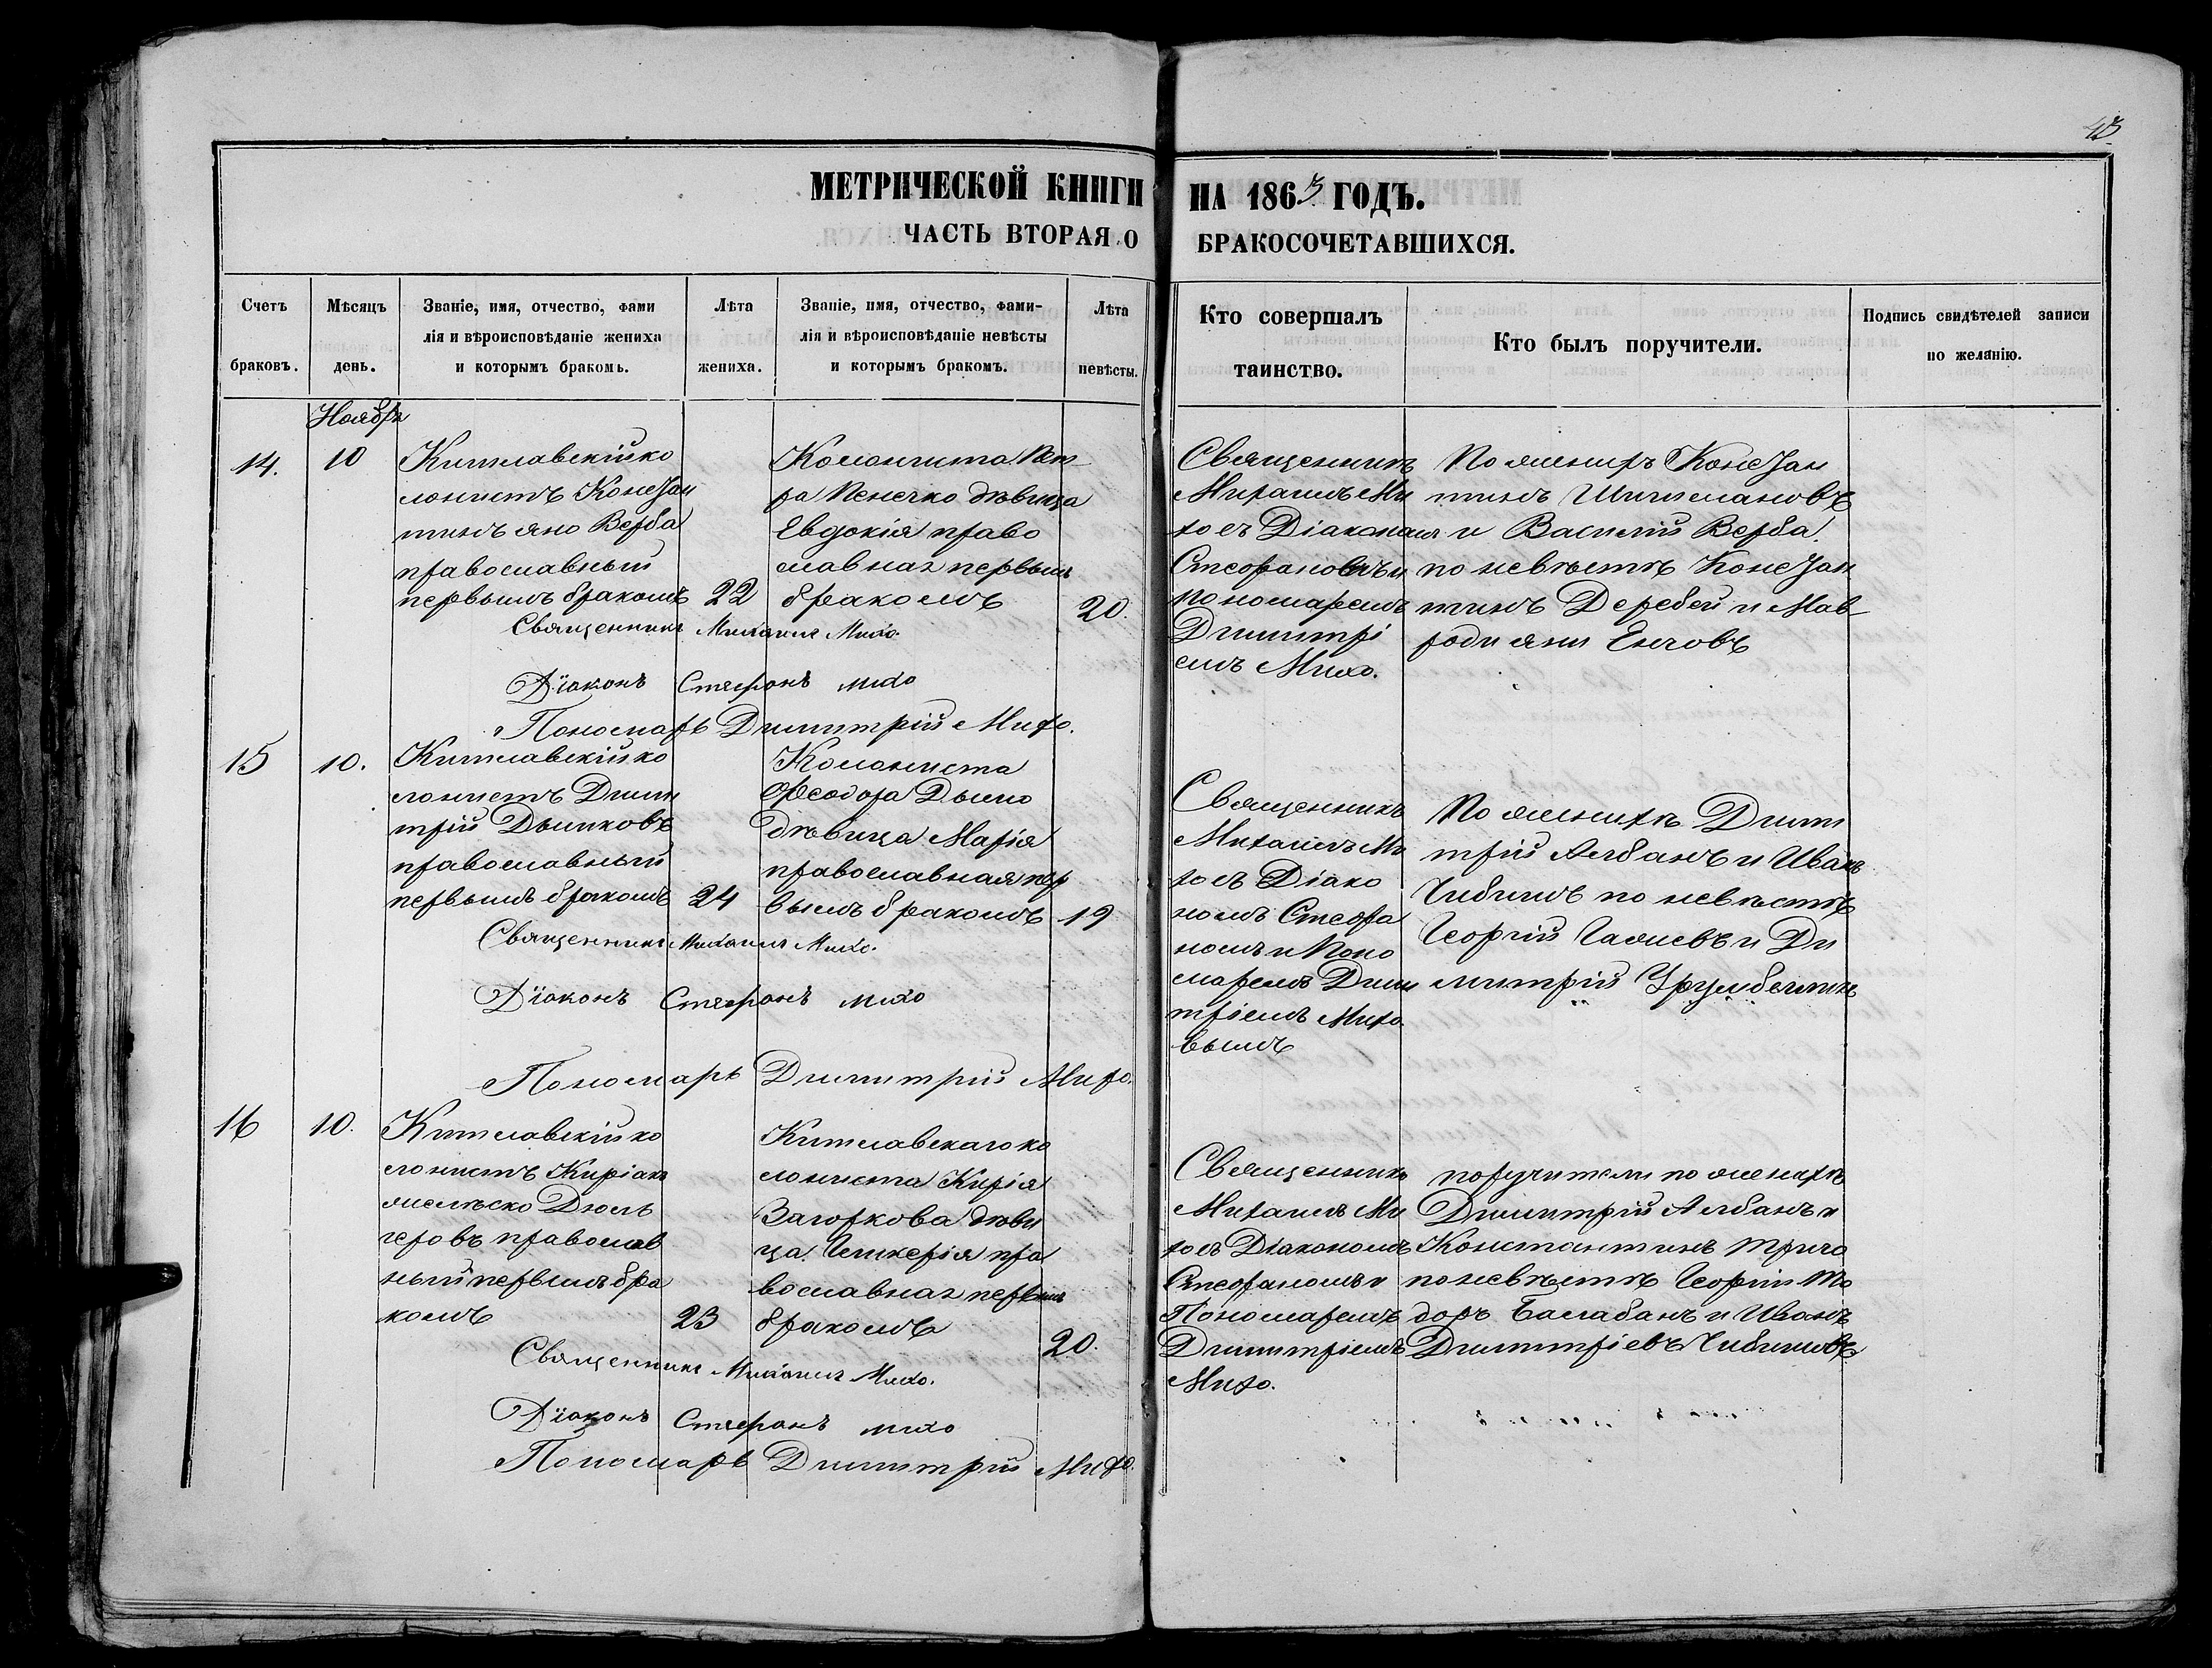 43
МЕТРИЧЕСКОЙ КНИГИ НА 1863 ГОДЪ.
ЧАСТЬ ВТОРАЯ О БРАКОСОЧЕТАВШИХСЯ.
Счетъ браковъ.
Мѣсяцъ день.
Званіе, имя, отчество, фами
лія и вѣроисповѣданіе жениха
и которымъ бракомъ.
Лѣта жениха.
Званіе, имя, отчество, фами-
лія и вѣроисповѣданіе невѣсты
и которымъ бракомъ.
Лѣта невѣсты.
Кто совершалъ
таинство.
Кто былъ поручители.
Подпись свидѣтелей записи
по желанію.
Ноябрь
14.
10
Китлавскій ко
лонистъ Констан
тинъ Верба
православный
первымъ бракомъ
22
Колониста Пет
ра Пенечко дѣвица
Евдокія право
славная первымъ
бракомъ
20.
Священникъ
Михаилъ Ми
хо съ Діакономъ
Стефаномъ и
пономаремъ
Димитрі
емъ Михо.
По женихѣ Констан
тинъ Шишмановъ
и Василій Верба.
по невѣстѣ Констан
тинъ Деребей и Мав
роди Енчовъ
Священникъ Михаилъ Михо.
Діаконъ Стефанъ михо
Пономарь Димитрій Михо.
15
10.
Китлавскій ко
лонистъ Дими
трій Дымковъ
православный
первымъ бракомъ
24
Колониста
Феодора Дымо
дѣвица Марія
православная пер
вымъ бракомъ
19
Священникъ
Михаилъ Ми
хо съ Діако
номъ Стефа
номъ и Поно
маремъ Дими
тріемъ Михо
вымъ
По женихѣ Дими
трій Албанъ и Иванъ
Чибишъ по невѣстѣ
Георгій и Ди
митрій
Священникъ Михаилъ Михо.
Діаконъ Стефанъ михо
Пономарь Димитрій Михо.
16
10.
Китлавскій ко
лонистъ Киріакъ
Дюль
геровъ православ
ный первымъ бра
комъ
23
Китлавскаго ко
лониста Кирія
Загоркова дѣви
ца Гликерія пра
вославная первымъ
бракомъ
20.
Священникъ
Михаилъ Ми
хо съ Діакономъ
Стефаномъ и
Пономаремъ
Димитріемъ
Михо.
поручители по женихѣ
Димитрій Албанъ и
Константинъ
по невѣстѣ Георгій То
доръ Балабанъ и Иванъ
Димитріевъ Чибишовъ
Священникъ Михаилъ Михо.
Діаконъ Стефанъ михо
Пономарь Димитрій Михо.